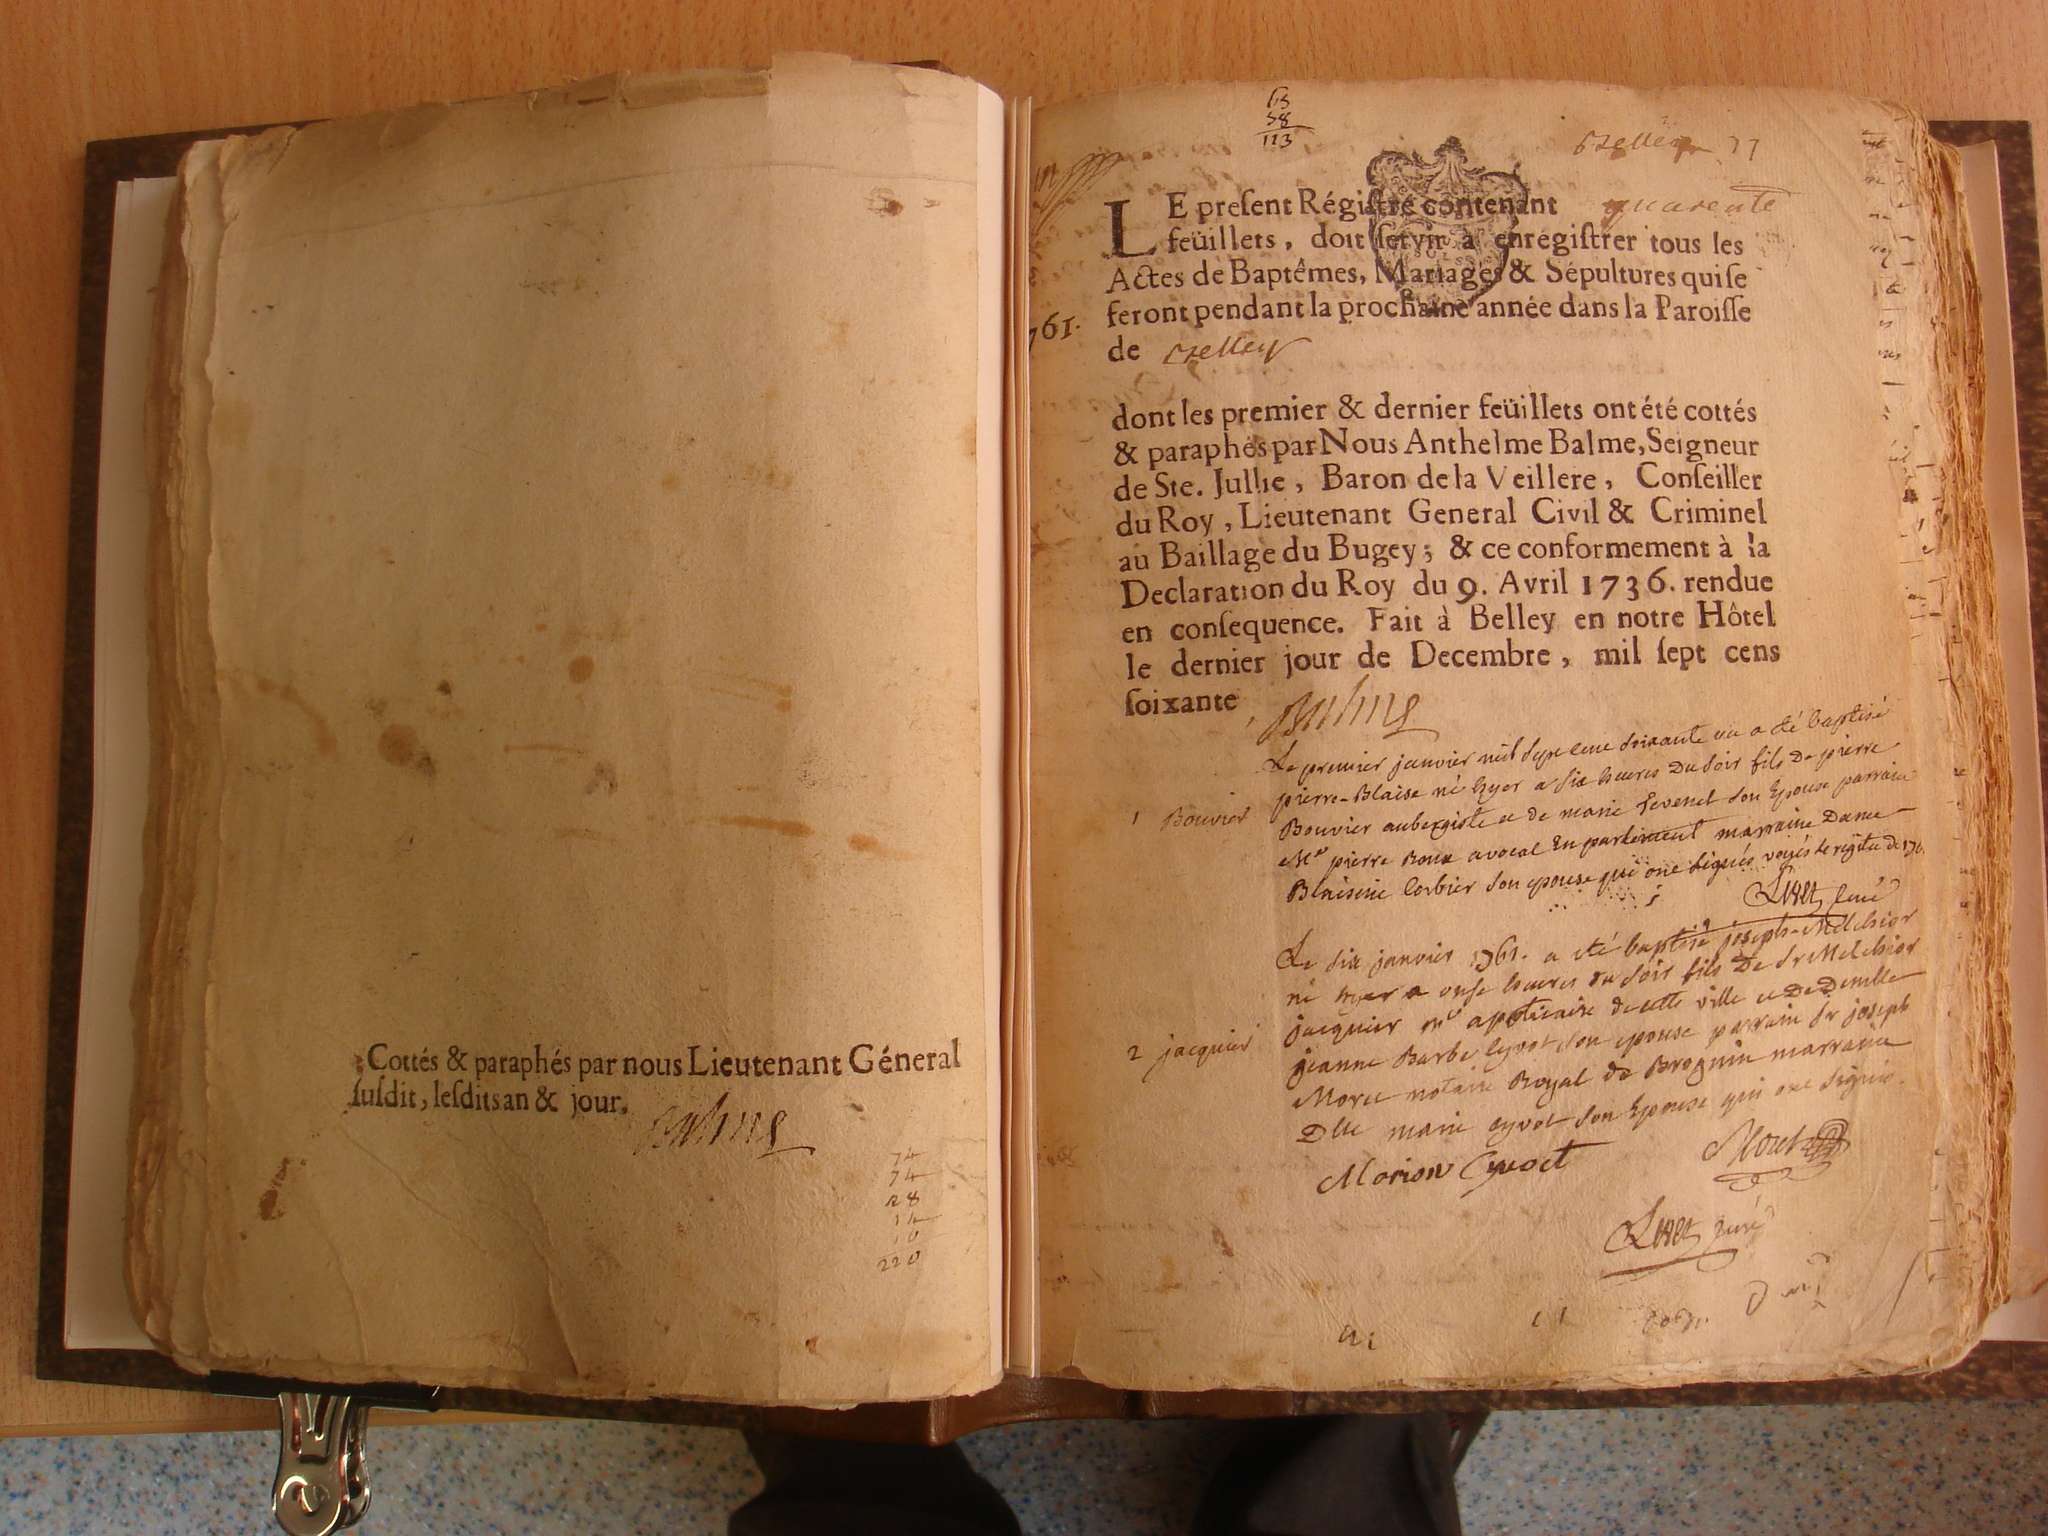 Cottés & paraphés par nous Lieutenant Géneral
susdit, lesdits an & jour.
Balme
74
74
28
14
10
220
65
58
123
Belley 77
LE present Régistre contenant quarente
feüillets, doit servir à enrégistrer tous les
Actes de Baptêmes, Mariages & Sépultures qui se
feront pendant la prochaine année dans la Paroisse
de Belley
761.
dont les premier & dernier feüillets ont été cottés
& paraphés par Nous Anthelme Balme, Seigneur
de Ste. Jullie, Baron de la Veillere, Conseiller
du Roy, Lieutenant General Civil & Criminel
au Baillage du Bugey; & ce conformement à la
Declaration du Roy du 9. Avril 1736. rendue
en consequence. Fait à Belley en notre Hôtel
le dernier jour de Decembre, mil sept cens
soixante
Balme
Le premier janvier mil sept cent soixante un a été baptisé
pierre-Blaise né hyer a six heures du soir fils de pierre
1 Bouvier
Bouvier aubergiste et de marie son Epouse parrain
Me pierre Roux avocat En parlement marraine Dame
Blaisine Corbier son epouse qui ont signés voyés le registre de 176
curé
Le six janvier 1761. a été baptisé joseph-Melchior
né hyer a onse heures du soir fils de Sr Melchior
2 jacquier
jacquier me apoticaire de cette ville et de Demlle
jeanne Barbe Cyvot son epouse parrain Sr joseph
Moret notaire Royal de Brognin marraine
Dlle marie Cyvot son Epouse qui ont signés.
Morion Cyvoct
Moret
curé